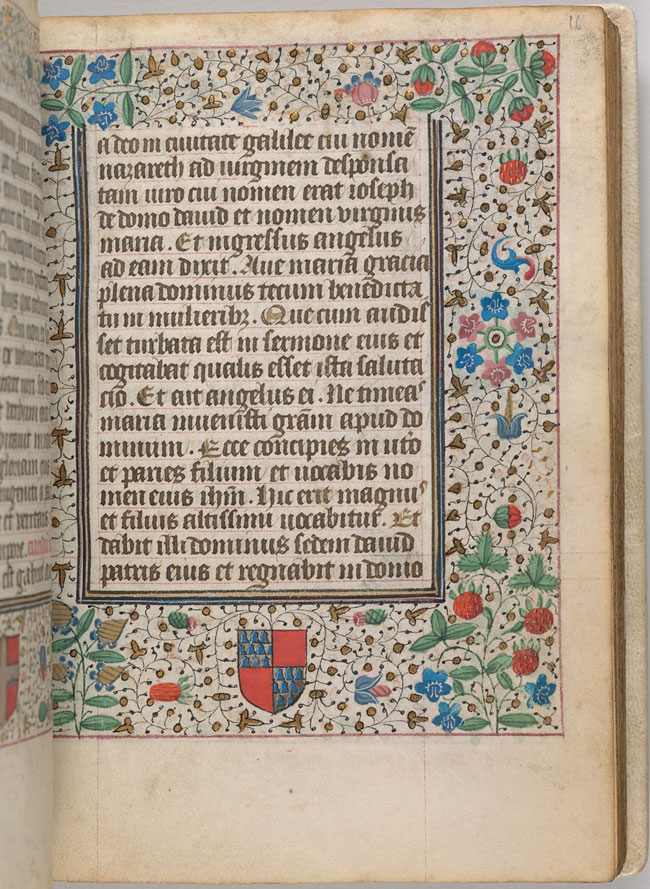 16
a deo in civitate galilee cui nomē
nazareth ad virginem desponsa
tam viro cui nomen erat ioseph
de domo david et nomen virginis
maria. Et ingressus angelus
ad eam dixit. Ave maria gracia
plena dominus tecum benedicta
tu in mulieribꝫ. Que cum audis
set turbata est in sermone eius et
cogitabat qualis esset ista saluta
cio. Et ait angelus ei. Ne timeas
maria invenisti grām apud do
minum. Ecce concipies in utō
et paries filium et vocabis no
men eius ihm̄. Hic erit magnus
et filius altissimi vocabitur. Et
dabit illi dominus sedem david
patris eius et regnabit in domo